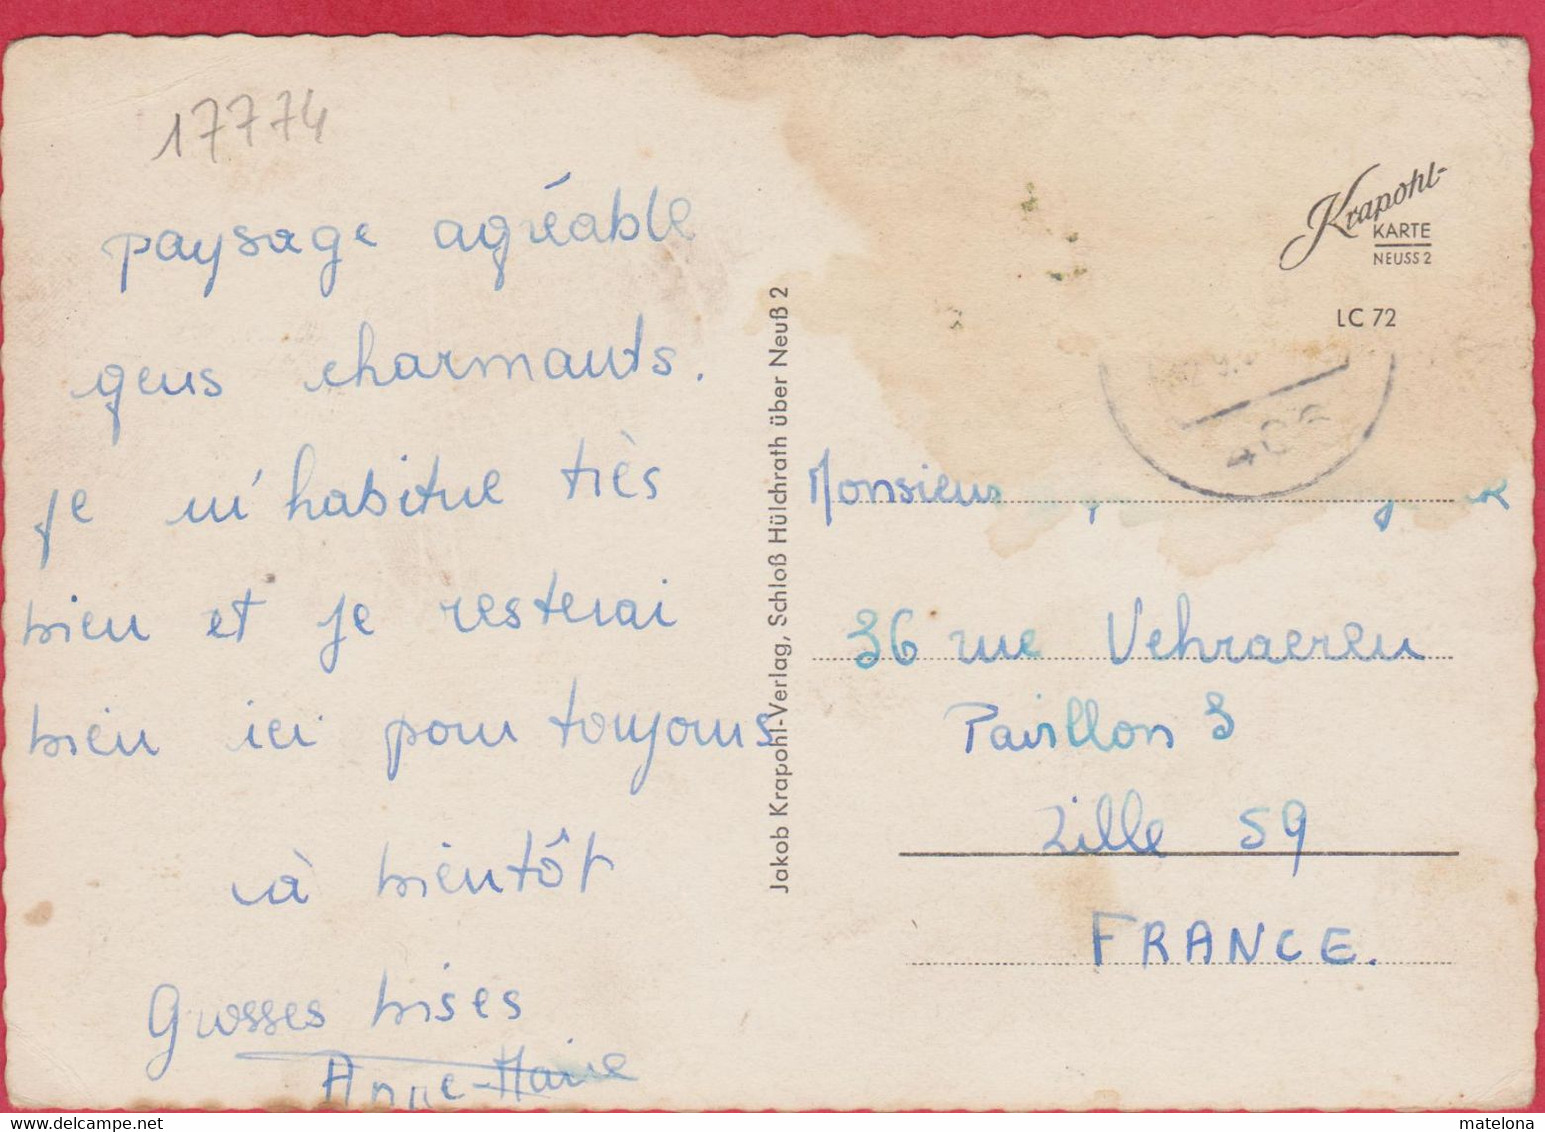 17774
paysage agréable
gens charmants.
je m'habitue très
bien et je resterai
bien ici pour toujours
à bientôt
Grosses bises
Anne-Marie
Jakob Krapohl-Verlag, Schloß Hülchrath über Neuß 2
Krapohl-
KARTE
NEUSS 2
LC 72
406
Monsieur
36 rue Vehraeren
Pavillon 3
Lille 59
FRANCE.
matelona